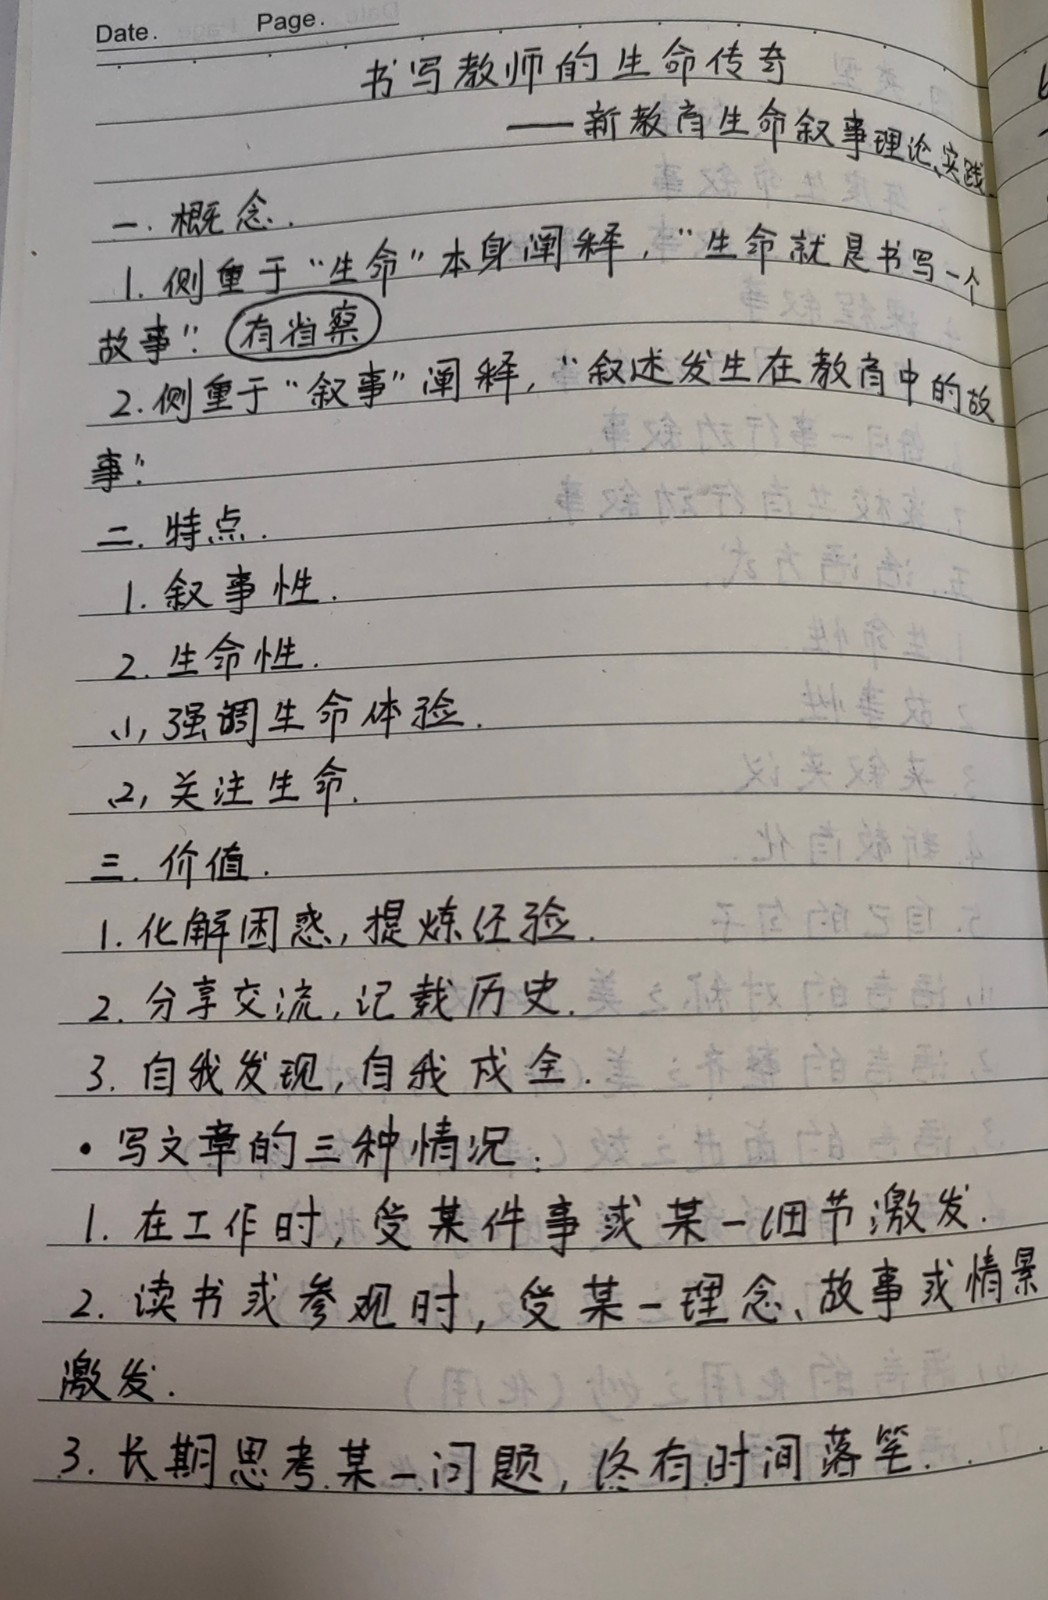 Date. Page.
书写教师的生命传奇
——新教育生命叙事理论、实践
一.概念.
1.侧重于“生命”本身阐释,“生命就是书写一个
故事”. 有省察
2.侧重于“叙事”阐释,“叙述发生在教育中的故
事”.
二.特点.
1.叙事性.
2.生命性.
(1)强调生命体验.
(2)关注生命.
三.价值.
1.化解困惑,提炼经验.
2.分享交流,记载历史.
3.自我发现,自我成全.
·写文章的三种情况:
1.在工作时,受某件事或某一细节激发.
2.读书或参观时,受某一理念、故事或情景
激发.
3.长期思考某一问题,终有时间落笔.